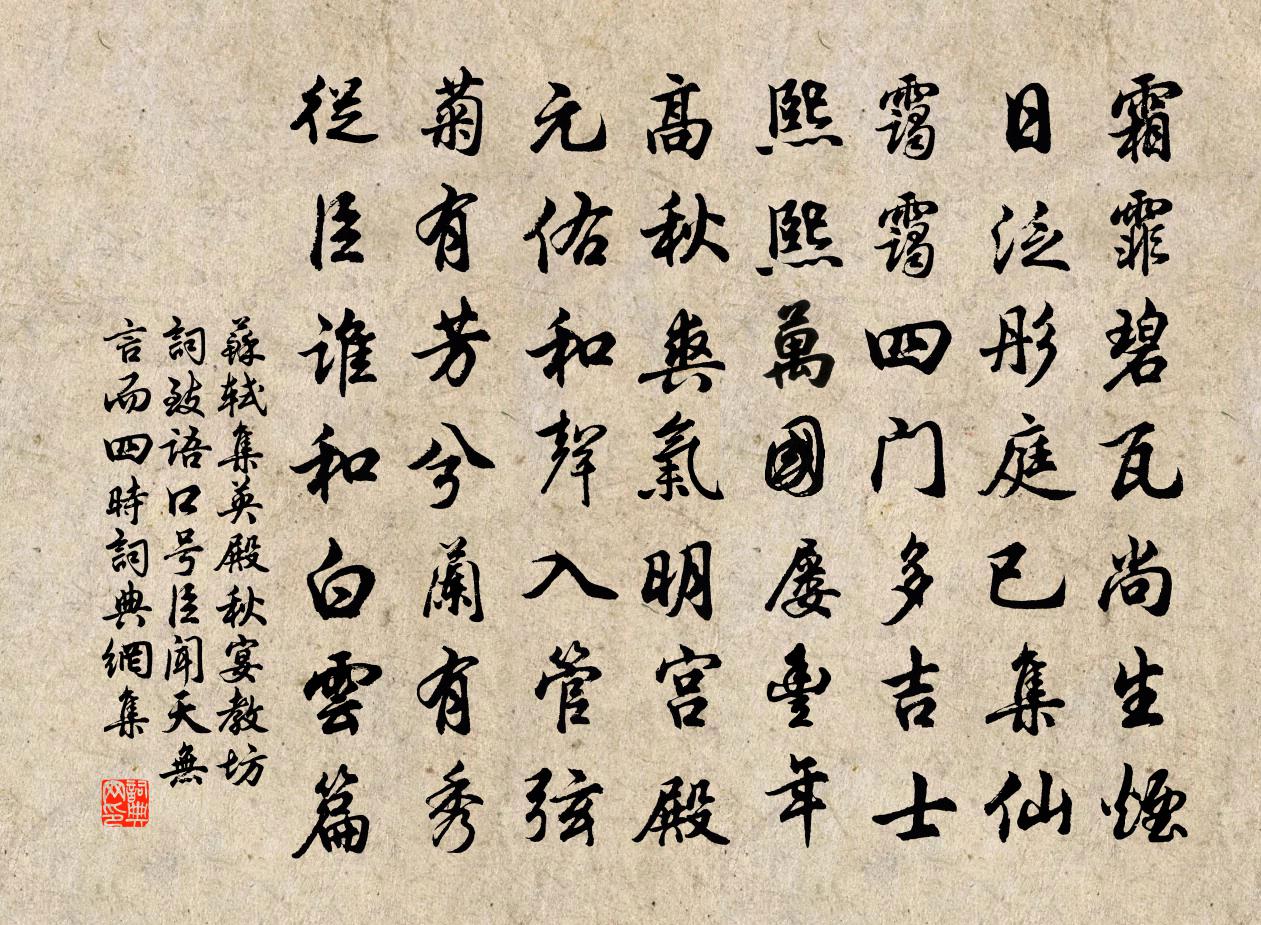 霜霏碧瓦尚生煙
日泛彤庭已集仙
靄靄四门多吉士
熙熙萬國屡豊年
高秋爽氣明宫殿
元佑和聲入管弦
菊有芳兮蘭有秀
從臣谁和白雲篇
蘇軾集英殿秋宴教坊
詞致語口号臣聞天無
言而四時詞典網集
詞典
网印